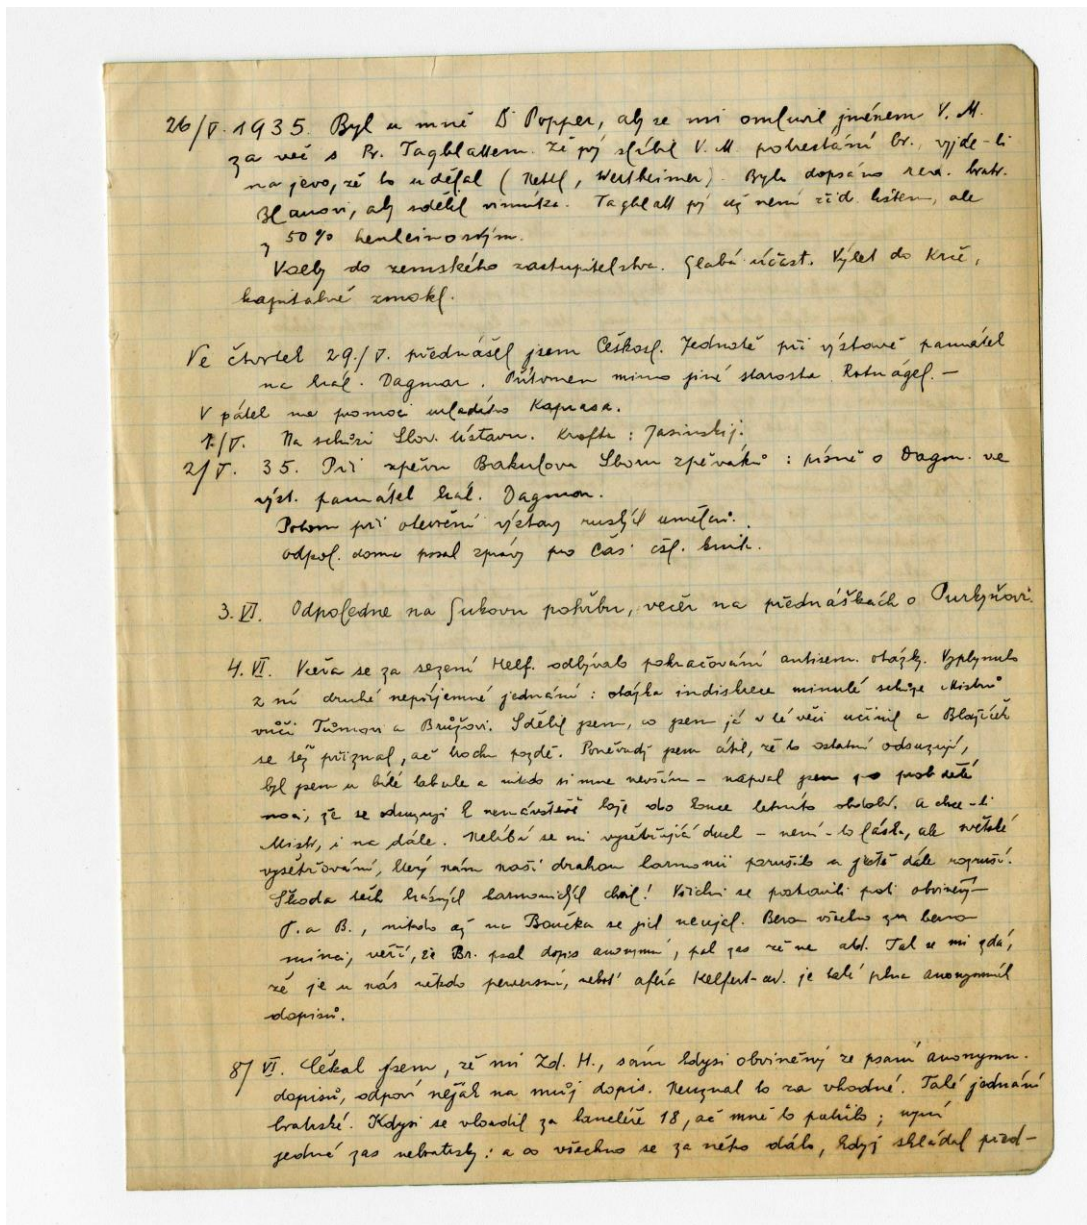 26/V. 1935. Byl u mně Dr Popper, aby se mi omluvil jménem V. M.
za věc s Pr. Tagblattem. Že prý slíbil V. M. potrestání br., vyjde-li
na jevo, že to udělal (Nettl, Wertheimer). Bylo dopsáno red. bratr.
Blauovi, aby sdělil viníka. Tagblatt prý už není žid. listem, ale
z 50% henleinovským.
Volby do zemského zastupitelstva. Slabá účast. Výlet do Krče,
kapitálně zmokl.
Ve čtvrtek 29./V. přednášel jsem Českosl. Jednotě při výstavě památek
na král. Dagmar. Přítomen mimo jiné starosta Rotnágel. –
V pátek na pomoci mladého Kaprasa.
1./V. Na schůzi Slov. Ústavu. Krofta: Jasinskij.
2/V. 35. Při zpěvu Bakulova Sboru zpěváků: písně o Dagm. ve
výst. památek král. Dagmar.
Potom při otevření výstavy ruských umělců.
odpol. doma psal zprávy pro Čas. čsl. knih.
3. VI. Odpoledne na Sukovu pohřbu, večer na přednáškách o Purkyňovi.
4. VI. Včera se za sezení Helf. odbývalo pokračování antisem. otázky. Vyplynulo
z ní druhé nepříjemné jednání: otázka indiskrece minulé schůze Mistrů
vůči Tůmovi a Brůžovi. Sdělil jsem, co jsem já v té věci učinil a Blažíček
se též přiznal, ač trochu pozdě. Poněvadž jsem cítil, že to ostatní odsuzují,
byl jsem u bílé tabule a nikdo si mne nevším – napsal jsem po probdělé
noci, že se odsuzuji k nenávštěvě lóže do konce letního období. A chce-li
Mistr, i na dále. Nelíbí se mi vyšetřující duch – není-to láska, ale světské
vyšetřování, který nám naši drahou harmonii porušilo a ještě dále rozruší.
Škoda těch krásných harmonických chvil! Všichni se postavili proti obviněným
T. a B., nikdo až na Boučka se jich neujal. Berou všechno za bernou
minci, věří, že Br. psal dopis anonymní, pak zas že ne atd. Tak se mi zdá,
že je u nás někdo perversní, neboť aféra Helfert-ov. je také plna anonymních
dopisů.
8/VI. Čekal jsem, že mi Zd. H., sám kdysi obviněný ze psaní anonymn.
dopisů, odpoví nějak na můj dopis. Neuznal to za vhodné. Také jednání
bratrské. Kdysi se vloudil za kancléře 18, ač mně to patřilo; nyní
jedná zas nebratrsky: a co všechno se za něho dálo, když skládal před-